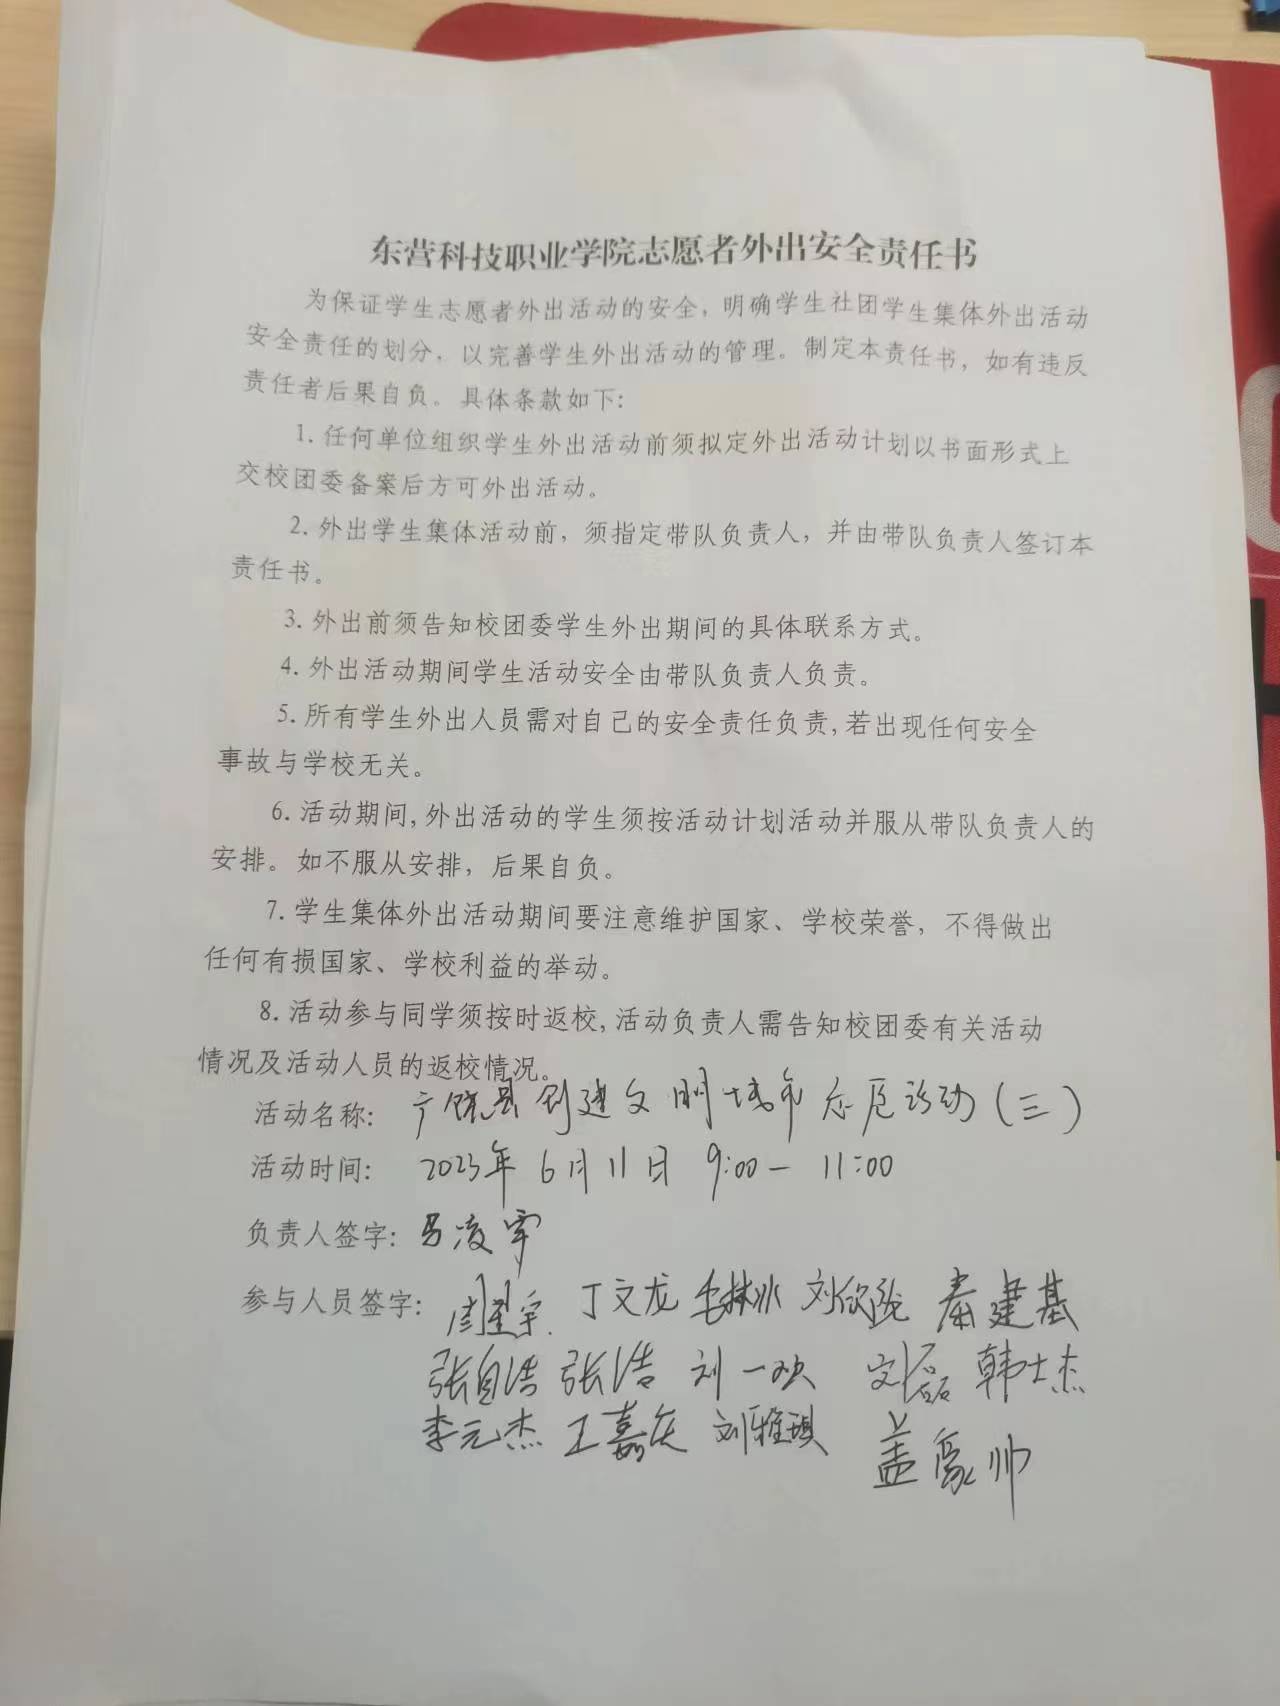 东营科技职业学院志愿者外出安全责任书
为保证学生志愿者外出活动的安全，明确学生社团学生集体外出活动
安全责任的划分，以完善学生外出活动的管理。制定本责任书，如有违反
责任者后果自负。具体条款如下：
1. 任何单位组织学生外出活动前须拟定外出活动计划以书面形式上
交校团委备案后方可外出活动。
2. 外出学生集体活动前，须指定带队负责人，并由带队负责人签订本
责任书。
3. 外出前须告知校团委学生外出期间的具体联系方式。
4. 外出活动期间学生活动安全由带队负责人负责。
5. 所有学生外出人员需对自己的安全责任负责,若出现任何安全
事故与学校无关。
6. 活动期间,外出活动的学生须按活动计划活动并服从带队负责人的
安排。如不服从安排，后果自负。
7. 学生集体外出活动期间要注意维护国家、学校荣誉，不得做出
任何有损国家、学校利益的举动。
8. 活动参与同学须按时返校,活动负责人需告知校团委有关活动
情况及活动人员的返校情况。
活动名称: 广饶县创建文明城市志愿活动(三)
活动时间: 2023年6月11日 9:00—11:00
负责人签字: 马凌宇
参与人员签字: 周星宇 丁文龙 毛林冰 刘欣 秦建基
张自浩 张浩 刘一欢 刘磊 韩士杰
李元杰 王嘉庆 刘雅琪 盖家帅